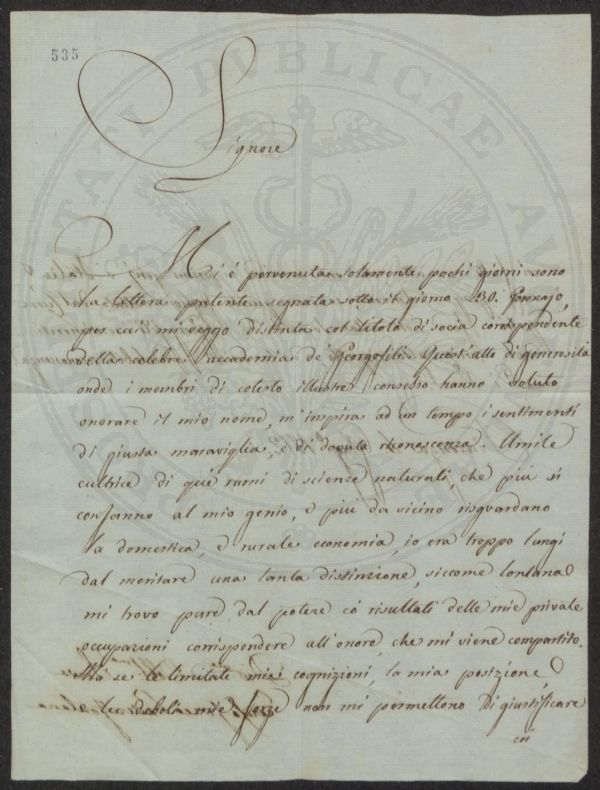 535
Signore
Mi è pervenuta solamente pochi giorni sono
la lettera patente segnata sotto il giorno 30. Gennajo,
per cui mi veggo distinta col titolo di socia corrispondente
della celebre accademia de' Georgofili. Quest'atto di generosità
onde i membri di cotesto illustre consesso hanno voluto
onorare il mio nome, m'inspira ad un tempo i sentimenti
di giusta maraviglia, e di dovuta riconoscenza. Umile
cultrice di que' rami di scienze naturali, che più si
confanno al mio genio, e più da vicino risguardano
la domestica, e rurale economia, io era troppo lungi
dal meritare una tanta distinzione, siccome lontana
mi trovo pure dal potere co' risultati delle mie private
occupazioni corrispondere all'onore, che mi viene compartito.
Ma se le limitate mie cognizioni, la mia posizione
e le deboli mie forze non mi permettono di giustificare
coi
PUBLICAE